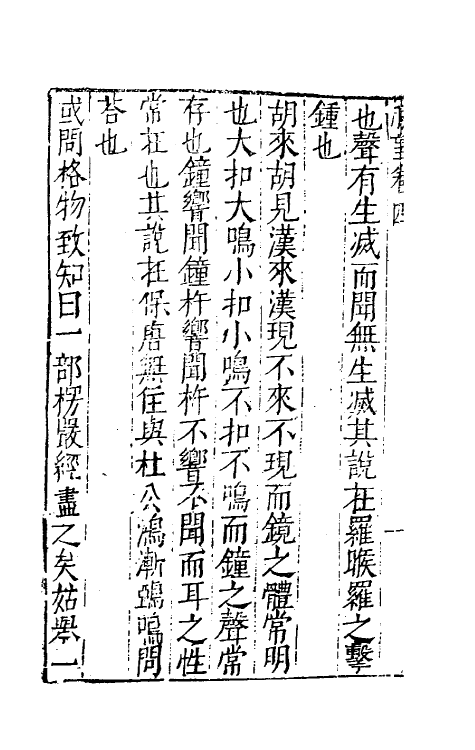 也聲有生滅而聞無生滅其說在羅睺羅之擊
鍾也
胡來胡見漢來漢現不來不現而鏡之體常明
也大扣大鳴小扣小鳴不扣不鳴而鐘之聲常
存也鐘響聞鐘杵響聞杵不響不聞而耳之性
常在也其說在保唐無住與杜公鴻漸鵶鳴問
荅也
或問格物致知曰一部楞嚴經盡之矣姑舉一